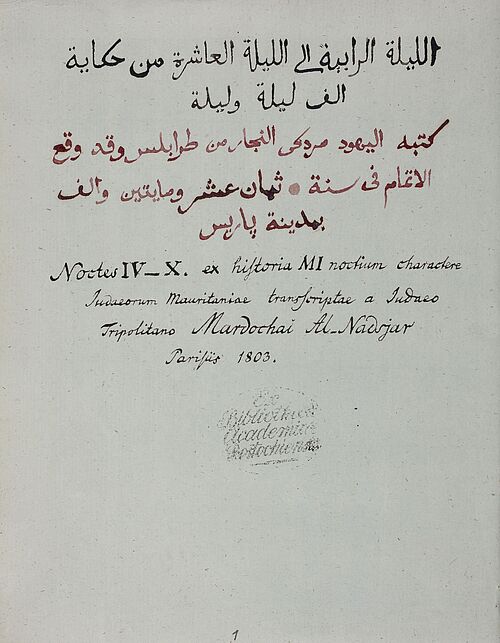 الليلة الرابعة الى الليلة العاشرة من حكاية
الف ليلة وليلة
كتبه اليهود مردكى النجار من طرابلس وقد وقع
الاتمام فى سنة ثمان عشر ومايتين والف
بمدينة پاريس
Noctes IV_X. ex historia MI noctium charactere
Judaeorum Mauritaniae transscriptae a Judaeo
Tripolitano Murdochai Al-Nadsjar
Parisiis 1803.
Ex
Bibliotheca
Academica
Rostochiensi
1